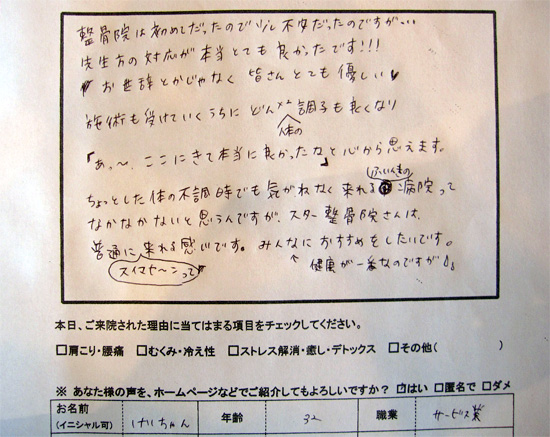 整骨院は初めてだったので少し不安だったのですが…
先生方の対応が本当とても良かったです!!!
♥お世辞とかじゃなく 皆さん とても 優しい♥
施術も受けていくうちに どん×2 体の 調子も良くなり
「あっ〜、ここにきて本当に良かったな」と心から思えます。
ちょっとした体の不調時でも気がねなく来れる ふんいきの 病院って
なかなかないと思うんですが、スター整骨院さんは、
普通に スイマセ〜ンって♥ 来れる感じです。みんなにおすすめをしたいです。
↑健康が一番なのですが
本日、ご来院された理由に当てはまる項目をチェックしてください。
□肩こり・腰痛 □むくみ・冷え性 □ストレス解消・癒し・デトックス □その他( )
※ あなた様の声を、ホームページなどでご紹介してもよろしいですか? ☑はい □匿名で □ダメ
お名前 (イニシャル可) けいちゃん 年齢 32 職業 サービス業